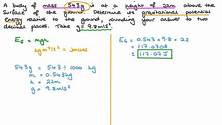 A body of mass 543g is at a height of 22m above the
surface of the ground. Determine its gravitational potential
energy relative to the ground, rounding your answer to two
decimal places. Take g = 9.8m/s²
E₆ = mgh
kg m²/s² = Joules
543g = 543 ÷ 1000 kg
m = 0.543kg
h = 22m
g = 9.8m/s²
E₆ = 0.543 × 9.8 × 22
= 117.0708
= 117.07J